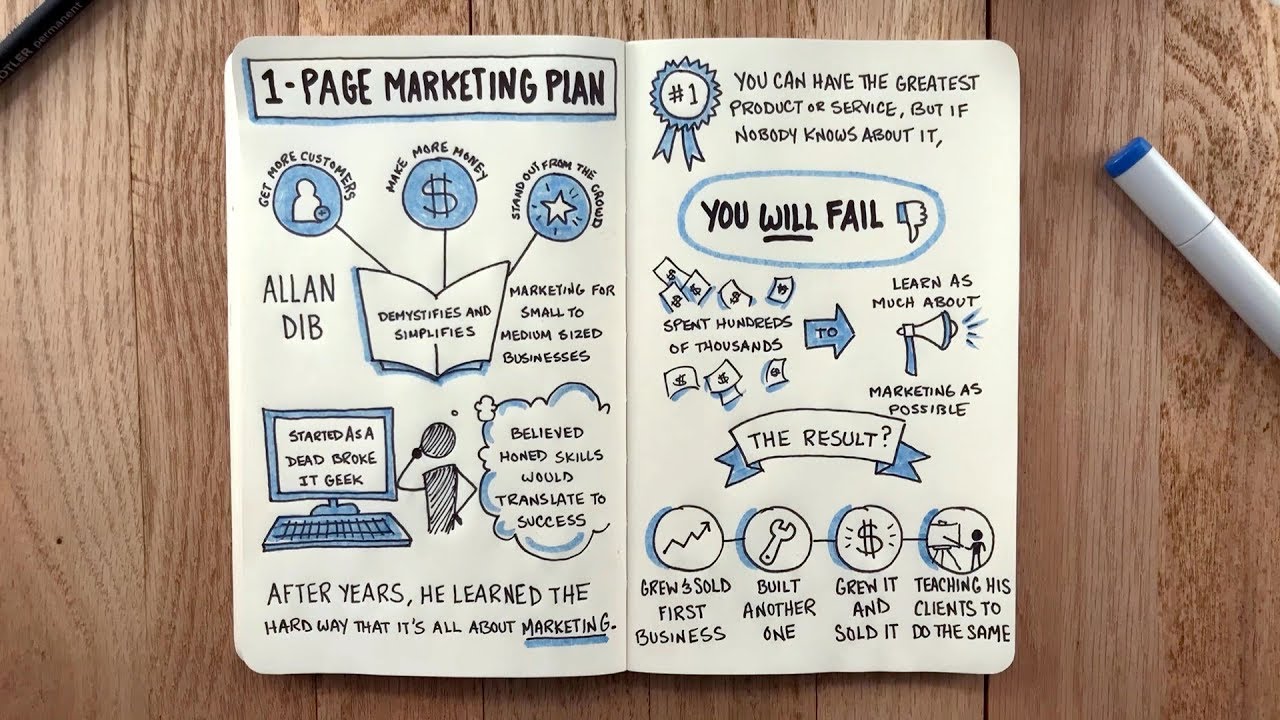 1-PAGE MARKETING PLAN
GET MORE CUSTOMERS
MAKE MORE MONEY
STAND OUT FROM THE CROWD
$
ALLAN
DIB
DEMYSTIFIES AND
SIMPLIFIES
MARKETING FOR
SMALL TO
MEDIUM SIZED
BUSINESSES
STARTED AS A
DEAD BROKE
IT GEEK
BELIEVED
HONED SKILLS
WOULD
TRANSLATE TO
SUCCESS
AFTER YEARS, HE LEARNED THE
HARD WAY THAT IT'S ALL ABOUT MARKETING.
#1
YOU CAN HAVE THE GREATEST
PRODUCT OR SERVICE, BUT IF
NOBODY KNOWS ABOUT IT,
YOU WILL FAIL
SPENT HUNDREDS
OF THOUSANDS
TO
LEARN AS
MUCH ABOUT
MARKETING AS
POSSIBLE
THE RESULT?
$
GREW & SOLD
FIRST
BUSINESS
BUILT
ANOTHER
ONE
GREW IT
AND
SOLD IT
TEACHING HIS
CLIENTS TO
DO THE SAME
permanent